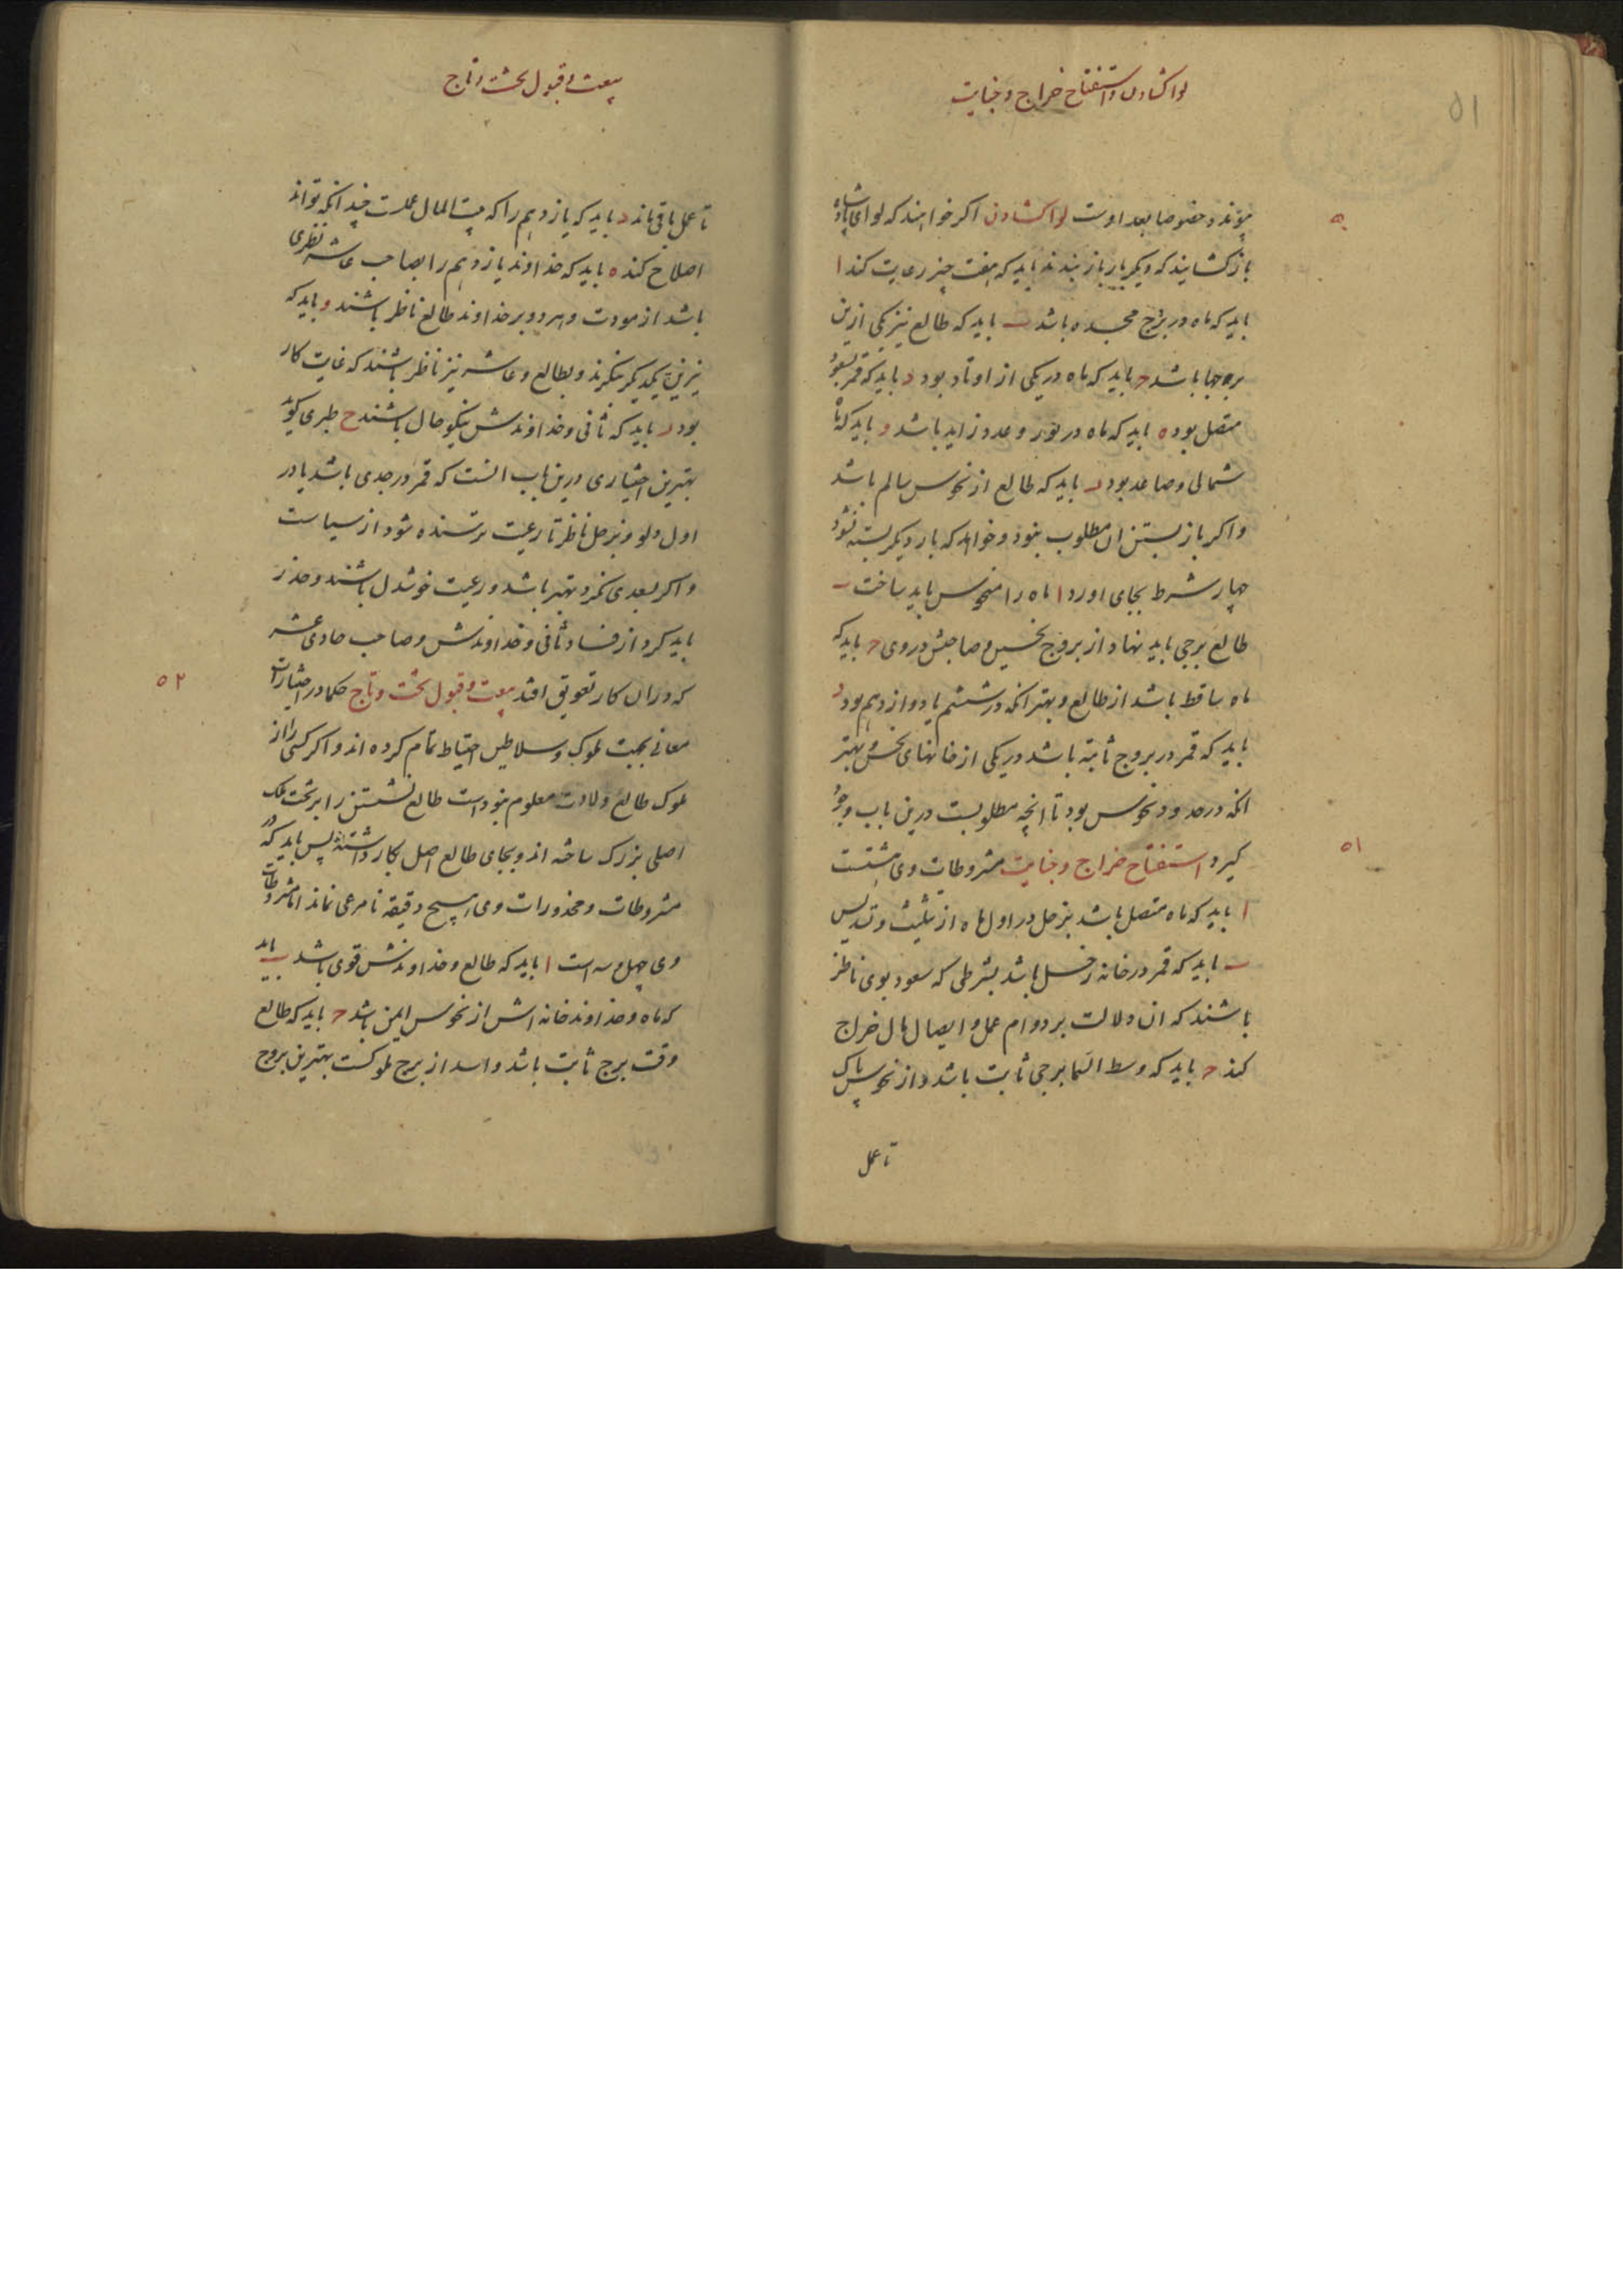 لوا کشادن و استفتاح خراج و جنایت
۵۱
پیوندد خصوصا بعد اوست لوا کشادن اکر خواهند که لوای پادشاه
باز کشایند که دیکر بار باز بندند باید که هفت چیز رعایت کند ا
باید که ماه در برج مجسده باشد ب باید که طالع نیز یکی ازین
برجها باشد ح باید که ماه در یکی از اوتاد بود د باید که قمر بسعود
متصل بود ه باید که ماه در نور و عدد زاید باشد و باید که ماه
شمالی و صاعد بود ر باید که طالع از نحوس سالم باشد
و اکر باز بستن ان مطلوب نبود و خواهد که بار دیکر بسته نشود
چهار شرط بجای اورد ا ماه را منحوس باید ساخت ب
طالع برجی باید نهاد از بروج نحسین و صاحبش در وی ح باید که
ماه ساقط باشد از طالع و بهتر انکه در ششم یا دوازدهم بود د
باید که قمر در بروج ثابته باشد در یکی از خانهای نحس و بهتر
انکه در حدود نحوس بود تا انچه مطلوبست درین باب وجود
۵۱
کیرد استفتاح خراج و جنایت مشروطات وی هشتست
ا باید که ماه متصل باشد بزحل در اول ماه از تثلیث و تسدیس
ب باید که قمر در خانه زحل باشد بشرطی که سعود بوی ناظر
باشند که ان دلالت بر دوام عمل و ایصال مال خراج
کند ح باید که وسط السما برجی ثابت باشد و از نحوس پاک
تا عمل
بیعت و قبول تخت و تاج
تا عمل باقی ماند د باید که یازدهم را که بیت المال عملست چندانکه تواند
اصلاح کند ه باید که خداوند یازدهم را بصاحب عاشر نظری
باشد از مودت و هر دو بر خداوند طالع ناظر باشند و باید که
نیرین بیکدیکر نیکرند و بطالع و عاشر نیز ناظر باشند که غایت کار
بود ر باید که ثانی و خداوندش نیکو حال باشند ح طبری کوید
بهترین اختیاری درین باب انست که قمر در جدی باشد یا در
اول دلو و بزحل ناظر تا رعیت ترسنده شود از سیاست
و اکر بسعدی نکرد بهتر باشد و رعیت خوشدل باشند و حذر
باید کرد از فساد ثانی و خداوندش و صاحب حادی عشر
۵۲
که دران کار تعویق افتد بیعت و قبول تخت و تاج حکما در اختیارات
معانی بجهت ملوک و سلاطین احتیاط تمام کرده اند و اکر کسی را از
ملوک طالع ولادت معلوم نبوداست طالع نشستن را بر تخت ملک
اصلی بزرک ساخته اند و بجای طالع اصل بکار داشته پس باید که در
مشروطات و محذورات وی هیچ دقیقه نامرعی نماند اما مشروطات
وی چهل و سه است ا باید که طالع و خداوندش قوی باشد ب باید
که ماه و خداوند خانه اش از نحوس ایمن باشد ح باید که طالع
وقت برج ثابت باشد و اسد از برج ملوکست بهترین بروج